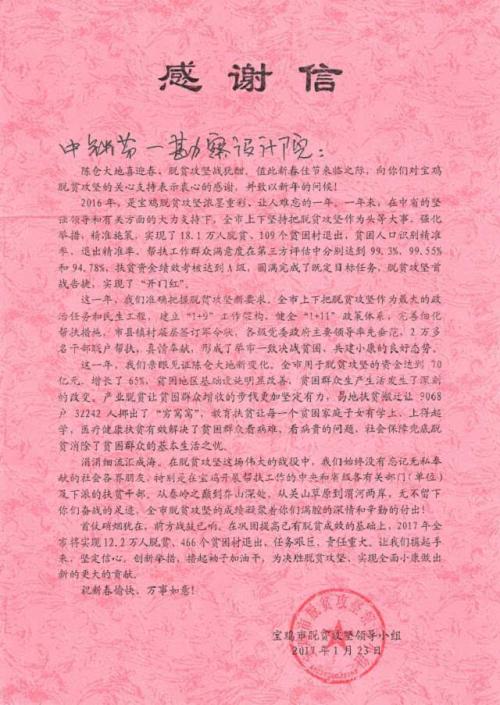 感谢信
中铁第一勘察设计院：
陈仓大地喜迎春，脱贫攻坚战犹酣。值此新春佳节来临之际，向你们对宝鸡
脱贫攻坚的关心支持表示衷心的感谢，并致以新年的问候！
2016年，是宝鸡脱贫攻坚浓墨重彩、让人难忘的一年。一年来，在中省的坚
强领导和有关方面的大力支持下，全市上下坚持把脱贫攻坚作为头等大事，强化
举措，精准施策，实现了18.1万人脱贫、109个贫困村退出，贫困人口识别精准
率、退出精准率、帮扶工作群众满意度在第三方评估中分别达到99.3%、99.55%
和94.78%，扶贫资金绩效考核达到A级，圆满完成了既定目标任务，脱贫攻坚首
战告捷，实现了“开门红”。
这一年，我们准确把握脱贫攻坚新要求。全市上下把脱贫攻坚作为最大的政
治任务和民生工程，建立“1+9”工作架构，健全“1+11”政策体系，完善细化
帮扶措施，市县镇村层层签订军令状，各级党委政府主要领导率先垂范，2万多
名干部联户帮扶，真情奉献，形成了举市一致决战贫困、共建小康的良好态势。
这一年，我们亲眼见证陈仓大地新变化。全市用于脱贫攻坚的资金达到70
亿元，增长了65%，贫困地区基础设施明显改善，贫困群众生产生活发生了深刻
的改变。产业脱贫让贫困群众增收的步伐更加坚定有力，易地扶贫搬迁让9068
户32242人挪出了“穷窝窝”，教育扶贫让每一个贫困家庭子女有学上、上得起
学，医疗健康扶贫有效解决了贫困群众看病难、看病贵的问题，社会保障兜底脱
贫消除了贫困群众的基本生活之忧。
涓涓细流汇成海。在脱贫攻坚这场伟大的战役中，我们始终没有忘记无私奉
献的社会各界朋友，特别是在宝鸡开展帮扶工作的中央和省级各有关部门（单位）
及下派的扶贫干部。从秦岭之巅到乔山深处，从关山草原到渭河两岸，无不留下
你们奋战的足迹，全市脱贫攻坚的成绩凝聚着你们满腔的深情和辛勤的付出！
首仗硝烟犹在，前方战鼓已响。在巩固提高已有脱贫成效的基础上，2017年全
市将实现12.2万人脱贫、466个贫困村退出，任务艰巨、责任重大。让我们携起手
来，坚定信心，创新举措，撸起袖子加油干，为决胜脱贫攻坚、实现全面小康做出
新的更大的贡献。
祝新春愉快、万事如意！
宝鸡市脱贫攻坚领导小组
2017年1月23日